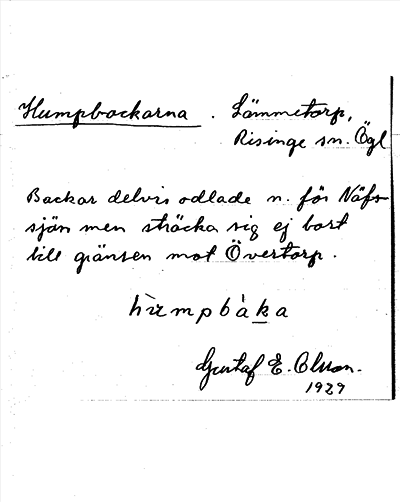 Humpbackarna . Lämmetorp,
Risinge sn. Ögl
Backar delvis odlade n. för Näfs-
sjön men sträcka sig ej bort
till gränsen mot Övertorp.
hùmpbàka
Gustaf E. Olsson.
1929